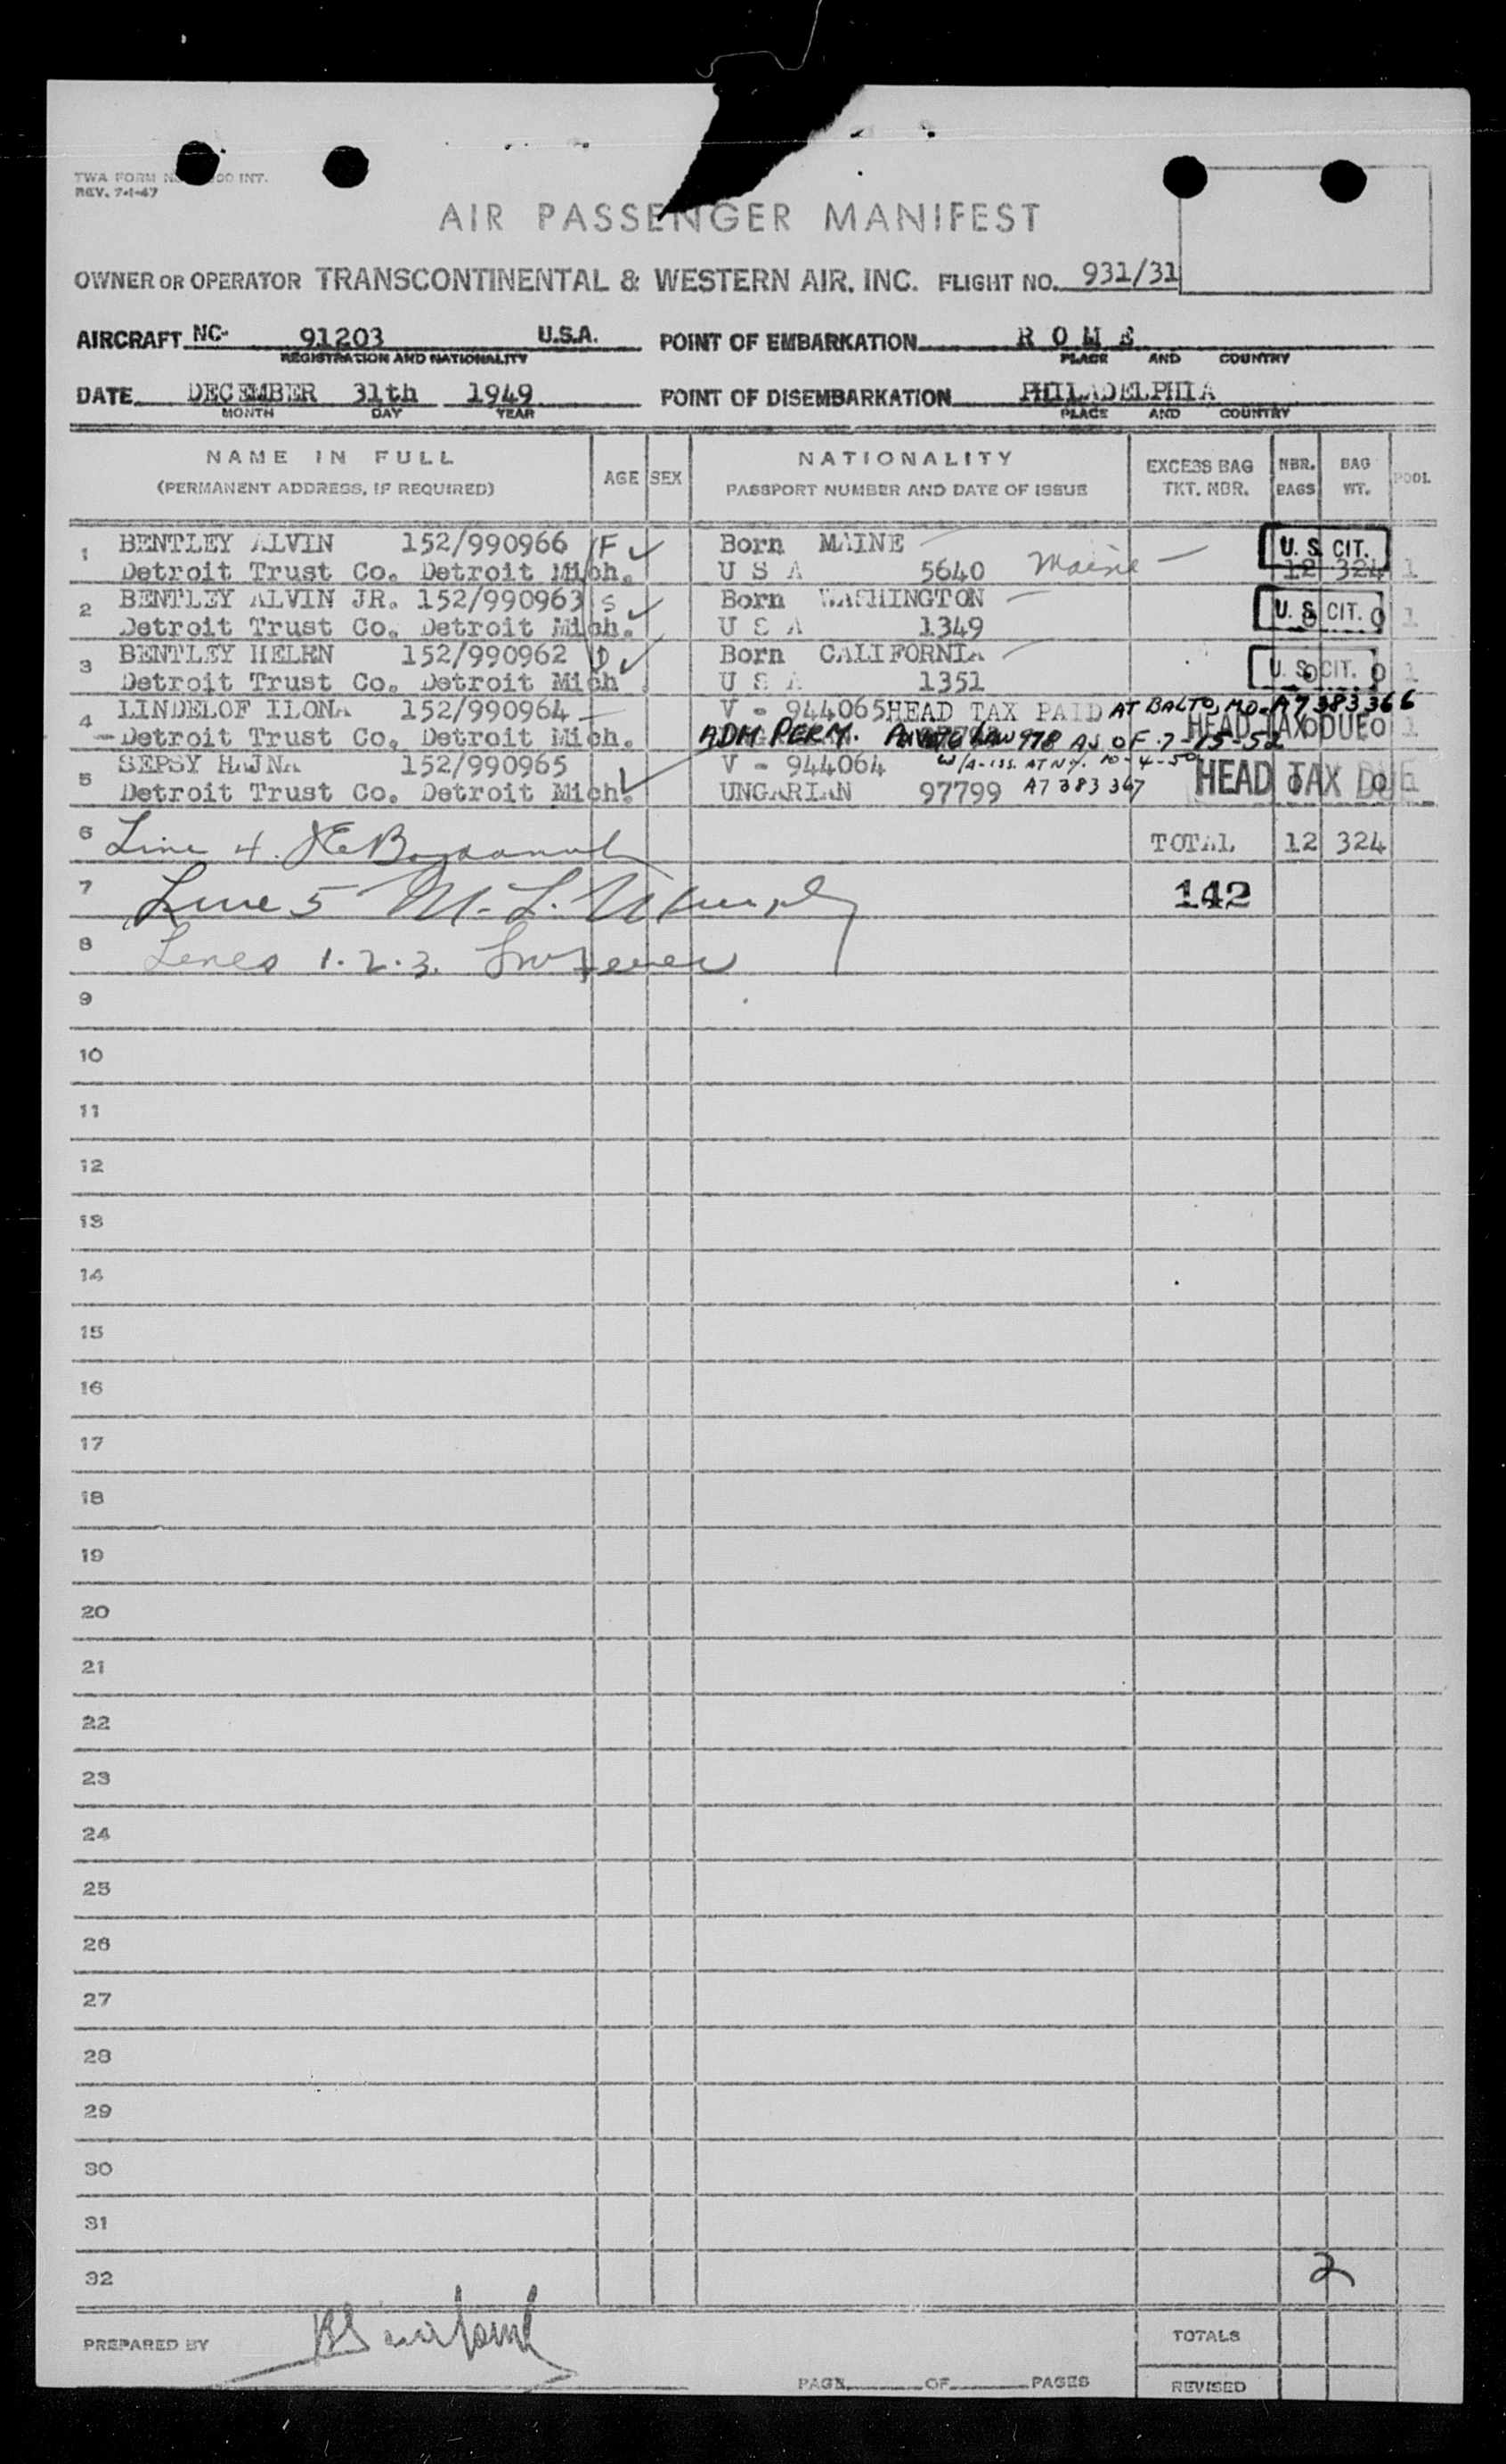 TWA FORM 00 INT.
REV. 7-1-47
AIR PASSENGER MANIFEST
OWNER OR OPERATOR TRANSCONTINENTAL & WESTERN AIR, INC. FLIGHT NO. 931/31
AIRCRAFT NC- 91203 U.S.A. POINT OF EMBARKATION R O M E
REGISTRATION AND NATIONALITY PLACE AND COUNTRY
DATE DECEMBER 31th 1949 POINT OF DISEMBARKATION PHILADELPHIA
MONTH DAY YEAR PLACE AND COUNTRY
NAME IN FULL AGE SEX NATIONALITY EXCESS BAG NBR. BAG POOL
(PERMANENT ADDRESS, IF REQUIRED) PASSPORT NUMBER AND DATE OF ISSUE TKT. NBR. BAGS WT.
1 BENTLEY ALVIN 152/990966 F Born MAINE U. S. CIT.
Detroit Trust Co. Detroit Mich. U S A 5640 Maine 12 324 1
2 BENTLEY ALVIN JR. 152/990963 S Born WASHINGTON
Detroit Trust Co. Detroit Mich. U S A 1349 U. S. CIT. 0 1
3 BENTLEY HELEN 152/990962 D Born CALIFORNIA
Detroit Trust Co. Detroit Mich. U S A 1351 U. S. CIT. 0 0 1
4 LINDELOF ILONA 152/990964 V - 944065 HEAD TAX PAID AT BALTO, MD. A7383366
Detroit Trust Co. Detroit Mich. ADM PERM. PRIVATE LAW 978 AS OF 7-15-52 HEAD TAX DUE 0 0 1
5 SEPSY HAJNA 152/990965 V - 944064 W/A-ISS. AT N.Y. 10-4-50
Detroit Trust Co. Detroit Mich. UNGARIAN 97799 A7383367 HEAD TAX DUE 0 0 1
6 Line 4. TOTAL 12 324
7 Line 5 M. L. Murphy 142
8 Lines 1.2.3.
9
10
11
12
13
14
15
16
17
18
19
20
21
22
23
24
25
26
27
28
29
30
31
32 2
PREPARED BY TOTALS
PAGE OF PAGES REVISED